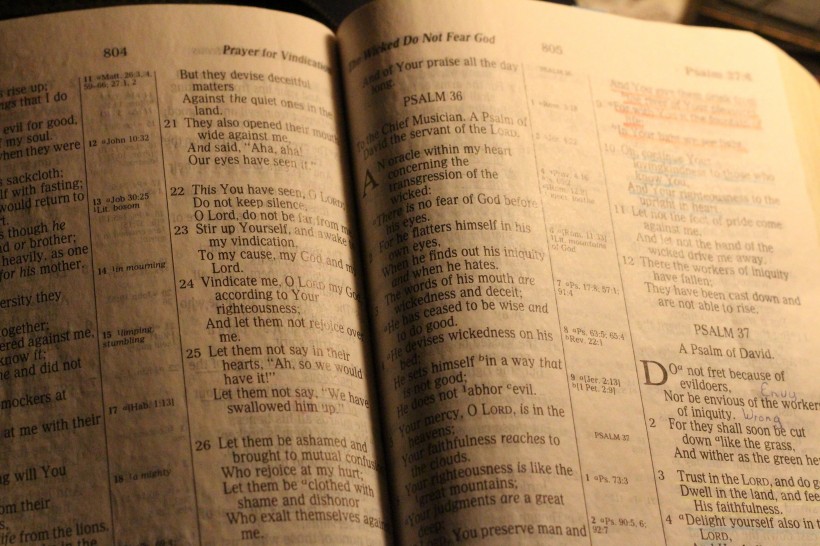 804
Prayer for Vindication
rise up;
ngs that I do
evil for good,
f my soul.
when they were
sackcloth;
lf with fasting;
would return to
s though he
nd or brother;
heavily, as one
for his mother.
ersity they
ogether;
ered against me,
know it;
ne and did not
mockers at
at me with their
ng will You
om their
ife from the lions.
12 ᵃJohn 10:32
13 ᵃJob 30:25
¹Lit. bosom
14 ¹in mourning
15 ¹limping,
stumbling
17 ᵃ[Hab. 1:13]
18 ¹a mighty
But they devise deceitful
matters
Against the quiet ones in the
land.
21 They also opened their mouth
wide against me,
And said, "Aha, aha!
Our eyes have seen it."
22 This You have seen, O LORD;
Do not keep silence.
O Lord, do not be far from me.
23 Stir up Yourself, and awake
my vindication,
To my cause, my God and my
Lord.
24 Vindicate me, O LORD my God,
according to Your
righteousness;
And let them not rejoice over
me.
25 Let them not say in their
hearts, "Ah, so we would
have it!"
Let them not say, "We have
swallowed him up."
26 Let them be ashamed and
brought to mutual confusion
Who rejoice at my hurt;
Let them be ᵃclothed with
shame and dishonor
Who exalt themselves against
me.
The Wicked Do Not Fear God
805
Psalm 37:4
And of Your praise all the day
long.
PSALM 36
To the Chief Musician. A Psalm of
David the servant of the LORD.
AN oracle within my heart
concerning the
transgression of the
wicked:
ᵃThere is no fear of God before
his eyes.
For he flatters himself in his
own eyes,
When he finds out his iniquity
and when he hates.
The words of his mouth are
wickedness and deceit;
ᵃHe has ceased to be wise and
to do good.
ᵃHe devises wickedness on his
bed;
He sets himself ᵇin a way that
is not good;
He does not ¹abhor ᶜevil.
Your mercy, O LORD, is in the
heavens;
Your faithfulness reaches to
the clouds.
Your righteousness is like the
great mountains;
ᵃYour judgments are a great
deep;
LORD, You preserve man and
7 ᵃPs. 17:8; 57:1;
91:4
8 ᵃPs. 63:5; 65:4
ᵇRev. 22:1
9 ᵃ[Jer. 2:13]
ᵇ[1 Pet. 2:9]
PSALM 37
1 ᵃPs. 73:3
2 ᵃPs. 90:5, 6;
92:7
ᵇIn Your light we see light.
10 Oh, continue Your
to those who
know You,
And Your righteousness to the
upright in heart.
11 Let not the foot of pride come
against me,
And let not the hand of the
wicked drive me away.
12 There the workers of iniquity
have fallen;
They have been cast down and
are not able to rise.
PSALM 37
A Psalm of David.
DOᵃ not fret because of
evildoers,
Envy
Nor be envious of the workers
of iniquity. Wrong
2 For they shall soon be cut
down ᵃlike the grass,
And wither as the green he
3 Trust in the LORD, and do g
Dwell in the land, and fee
His faithfulness.
4 ᵃDelight yourself also in t
LORD,